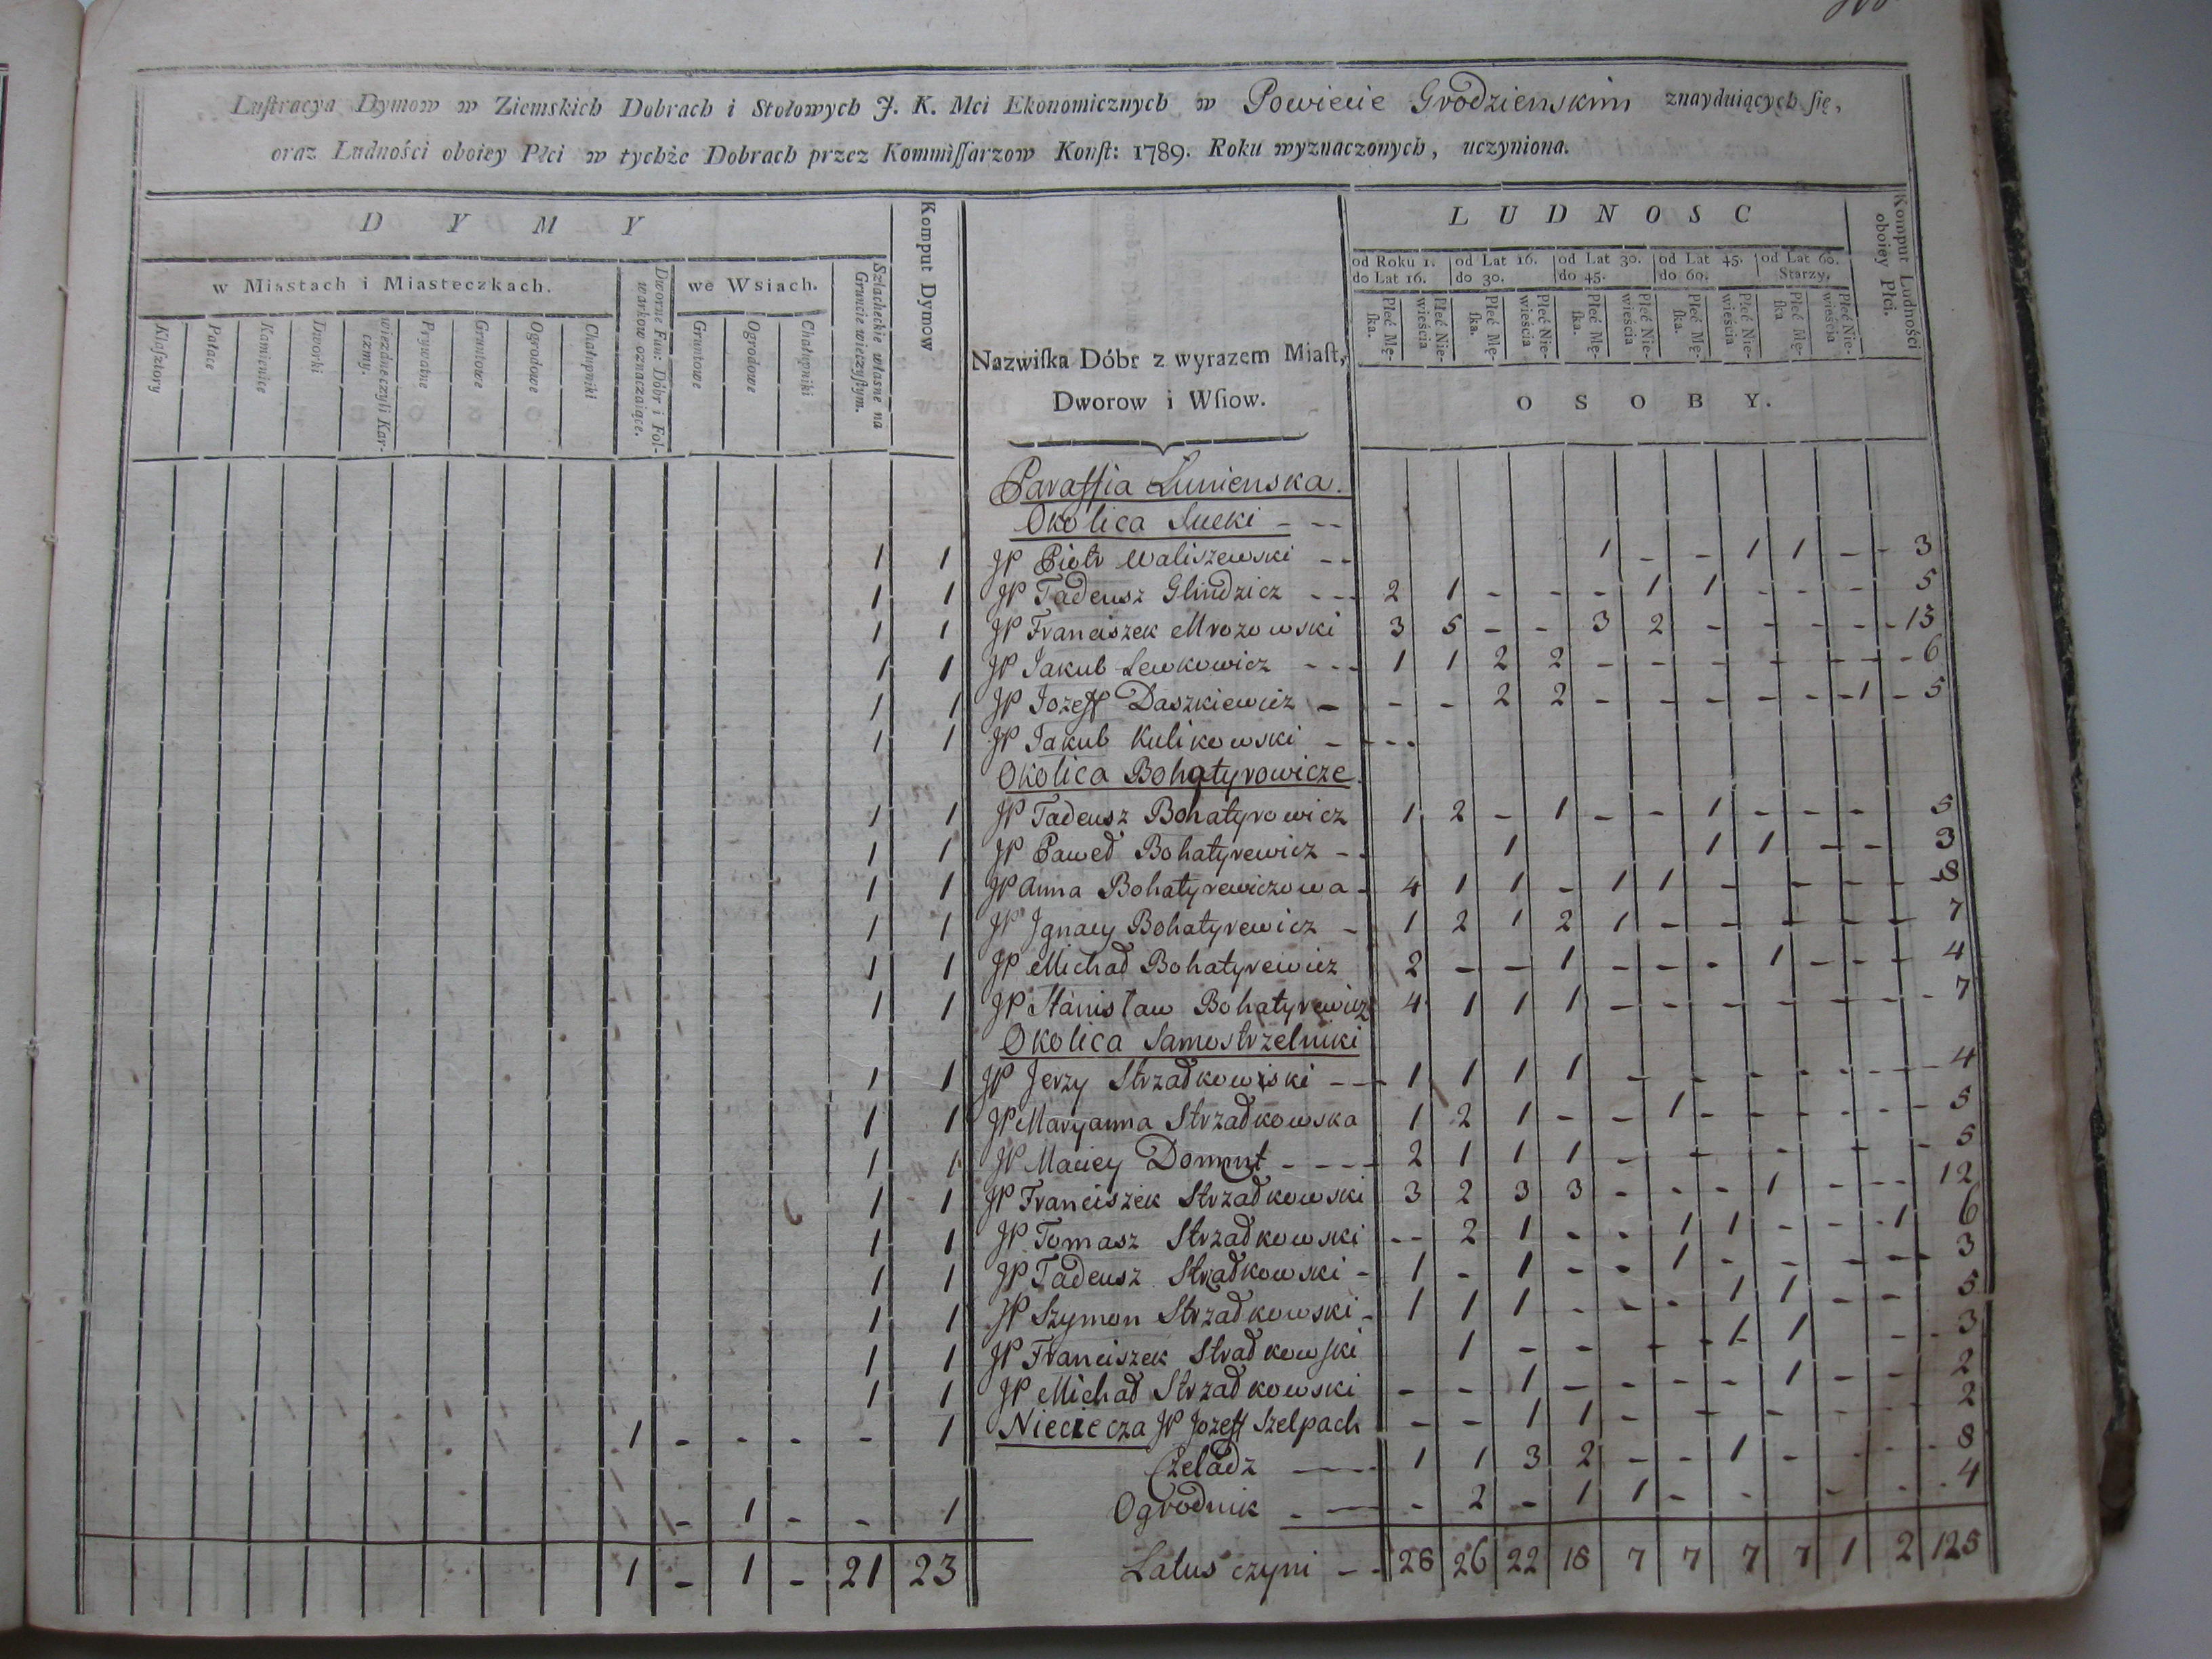 Lustracya Dymow w Ziemskich Dobrach i Stołowych J. K. Mci Ekonomicznych w Powiecie Grodzienskim znayduiących się,
oraz Ludności oboiey Płci w tychże Dobrach przez Kommissarzow Konst: 1789. Roku wyznaczonych, uczyniona.
D Y M Y
w Miastach i Miasteczkach.
Klasztory
Pałace
Kamienice
Dworki
wiezdne czyli Karczmy.
Prywatne
Gruntowe
Ogrodowe
Chałupniki
Dworne Fun: Dóbr i Folwarkow oznaczaiące.
we Wsiach.
Gruntowe
Ogrodowe
Chałupniki
Szlacheckie własne na Gruncie wieczystym.
Komput Dymow
Nazwiska Dóbr z wyrazem Miast,
Dworow i Wsiow.
L U D N O S C
od Roku 1. do Lat 16.
od Lat 16. do 30.
od Lat 30. do 45.
od Lat 45. do 60.
od Lat 60. Starzy.
Płeć Męska. Płeć Niewieścia Płeć Męska. Płeć Niewieścia Płeć Męska. Płeć Niewieścia Płeć Męska. Płeć Niewieścia Płeć Męska Płeć Niewieścia
Komput Ludności oboiey Płci.
O S O B Y.
Paraffia Łunienska.
Okolica Sucki - - -
1 1 JP Piotr Waliszewski - - 1 - - 1 1 - - 3
1 1 JP Tadeusz Glindzicz - - - 2 1 - - - 1 1 - - - 5
1 1 JP Franciszek Mrozowski 3 5 - - 3 2 - - - - 13
1 1 JP Jakub Lewkowicz - - - 1 1 2 2 - - - - - - 6
1 1 JP Jozeff Daszkiewicz - - - 2 2 - - - - - 1 - 5
1 1 JP Jakub Kulikowski - - - -
Okolica Bohatyrowicze
1 1 JP Tadeusz Bohatyrowicz 1 2 - 1 - - 1 - - - 5
1 1 JP Paweł Bohatyrewicz - - 1 1 1 - - 3
1 1 JP Anna Bohatyrewiczowa - 4 1 1 - 1 1 - - - - 8
1 1 JP Jgnacy Bohatyrewicz - 1 2 1 2 1 - - - - - 7
1 1 JP Michał Bohatyrewicz 2 - - 1 - - - 1 - - - 4
1 1 JP Stanisław Bohatyrewicz 4 1 1 1 - - - - - - 7
Okolica Samostrzelniki
1 1 JP Jerzy Strzałkowski - - 1 1 1 1 - - - - - - 4
1 1 JP Maryanna Strzałkowska 1 2 1 - - 1 - - - - 5
1 1 JP Maciey Domunt - - - - 2 1 1 1 - - - - - 5
1 1 JP Franciszek Strzałkowski 3 2 3 3 - - - 1 - - - 12
1 1 JP Tomasz Strzałkowski - - 2 1 - - 1 1 - - - 1 6
1 1 JP Tadeusz Strzałkowski - 1 - 1 - - 1 - - - - 3
1 1 JP Szymon Strzałkowski - 1 1 1 - - - 1 1 - - 5
1 1 JP Franciszek Strałkowski 1 - - - - 1 1 - - 3
1 1 JP Michał Strzałkowski - - 1 - - - - 1 - - 2
1 - - - - 1 Nieciecza JP Jozeff Szelpach - - 1 1 - - - - - 2
Czeladz - - - 1 1 3 2 - - 1 - - - - 8
- 1 - - 1 Ogrodnik - - - - 2 - 1 1 - - - - - 4
1 - 1 - 21 23 Latus czyni - - 28 26 22 18 7 7 7 7 1 2 125